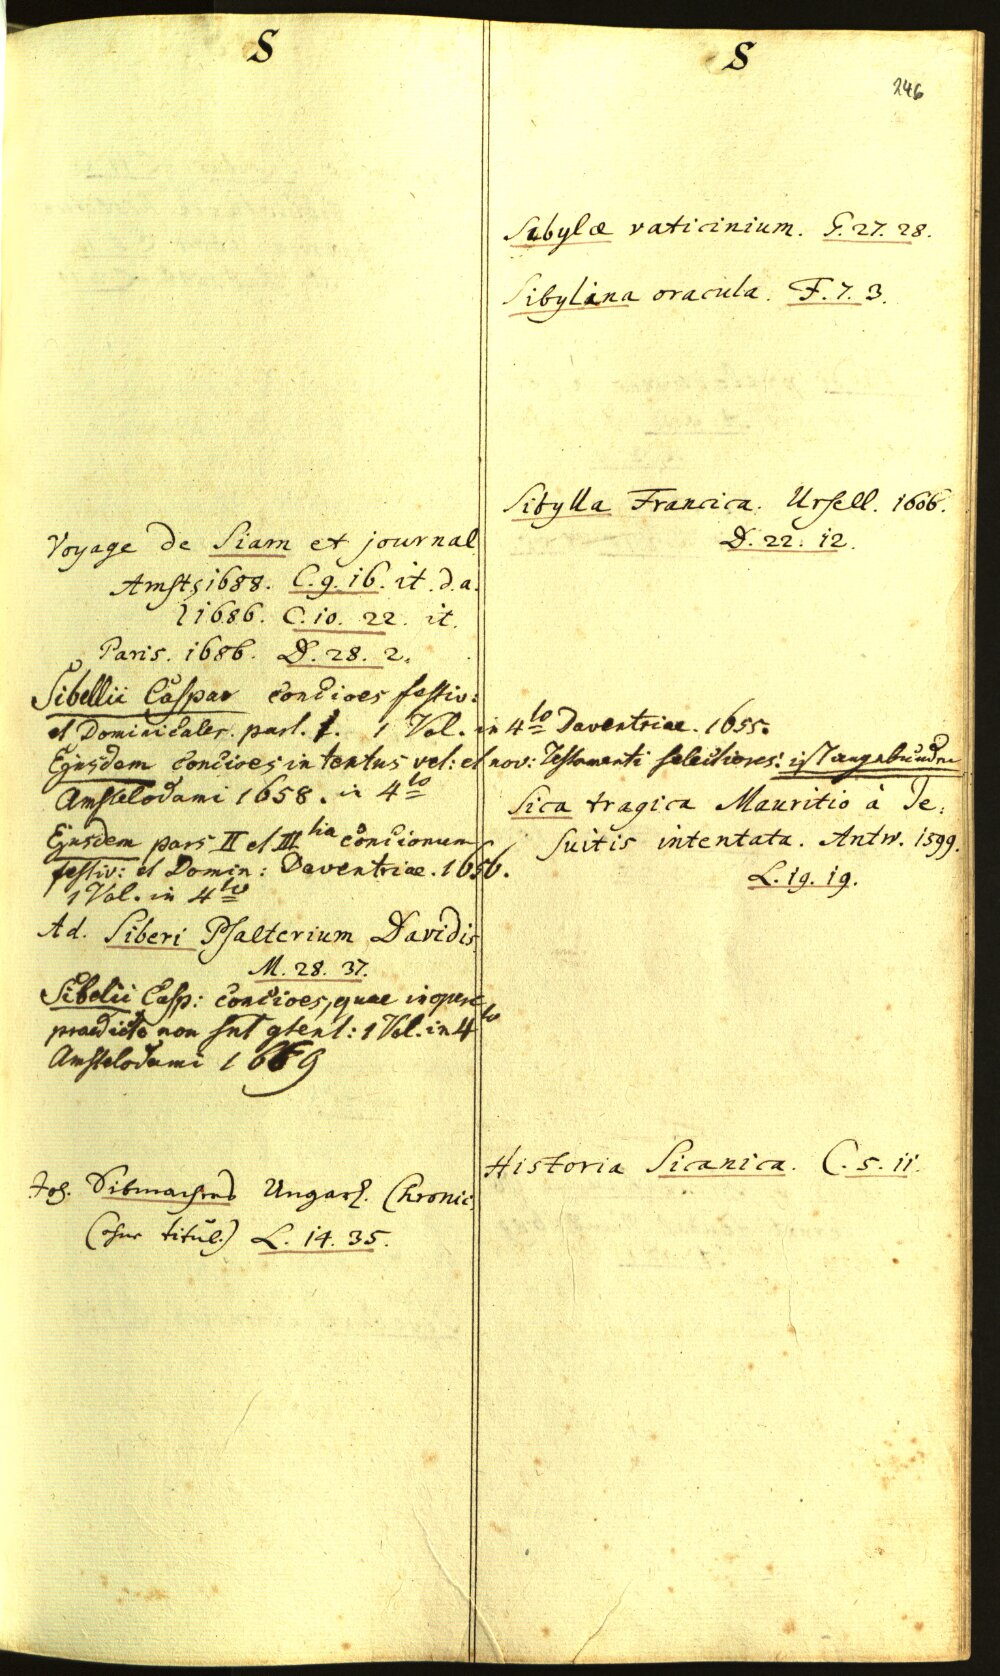 S
Voyage de Siam et journal
Amst. 1688. C. 9. 16. it. d. a.
1686. C. 10. 22. it.
Paris. 1686. D. 28. 2.
Sibellii Caspar concioes festiv:
et Dominicales. part. I. 1 Vol. in 4to Daventriae. 1655.
Ejusdem concioes in textus vet: et nov: Testamenti selectiores: ist angebunden
Amstelodami 1658. in 4to
Ejusdem pars II et III tia concionum
festiv: et Domin: Daventriae. 1656.
1 Vol. in 4to
Ad. Siberi Psalterium Davidis
M. 28. 37.
Sibelii Casp: concioes, quae in opere
praedicto non snt gtent: 1 Vol. in 4to
Amstelodami 1669
Joh. Sibmachers Ungar. Chronic
(ohne titul.) L. 14. 35.
S
246
Sibylæ vaticinium. G. 27. 28.
Sibylina oracula. F. 7. 3.
Sibylla Francica. Ursell. 1606.
D. 22. 12.
Sica tragica Mauritio à Je:
suitis intentata. Antw. 1599.
L. 19. 19.
Historia Sicanica. C. 5. 11.